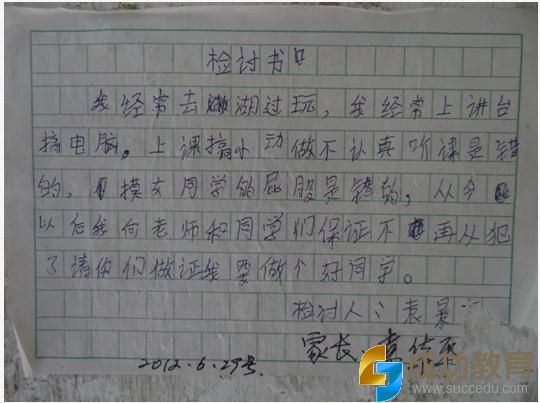 检讨书
我经常去湖过玩,我经常上讲台
搞电脑。上课搞小动做不认真听课是错
的,摸女同学的屁股是错的,从今
以后我向老师和同学们保证不再从犯
了请你们做证我要做个好同学。
检讨人:袁
家长:袁
2012.6.29号
成功教育
www.succedu.com